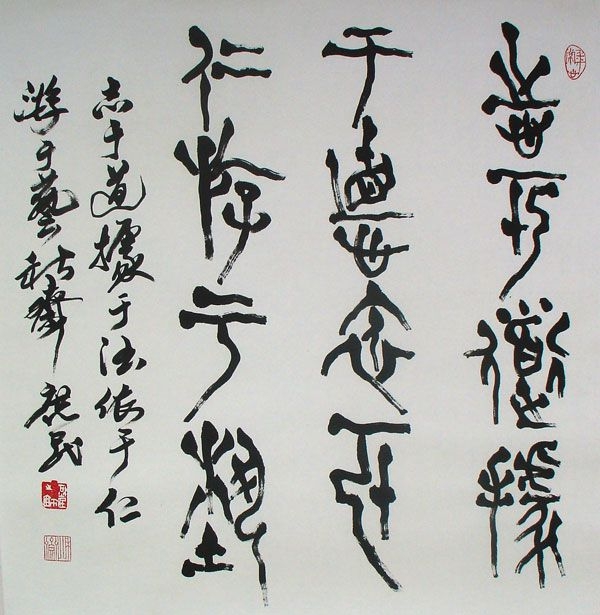 志于道據
于德依于
仁游于藝
志于道據于德依于仁
游于藝